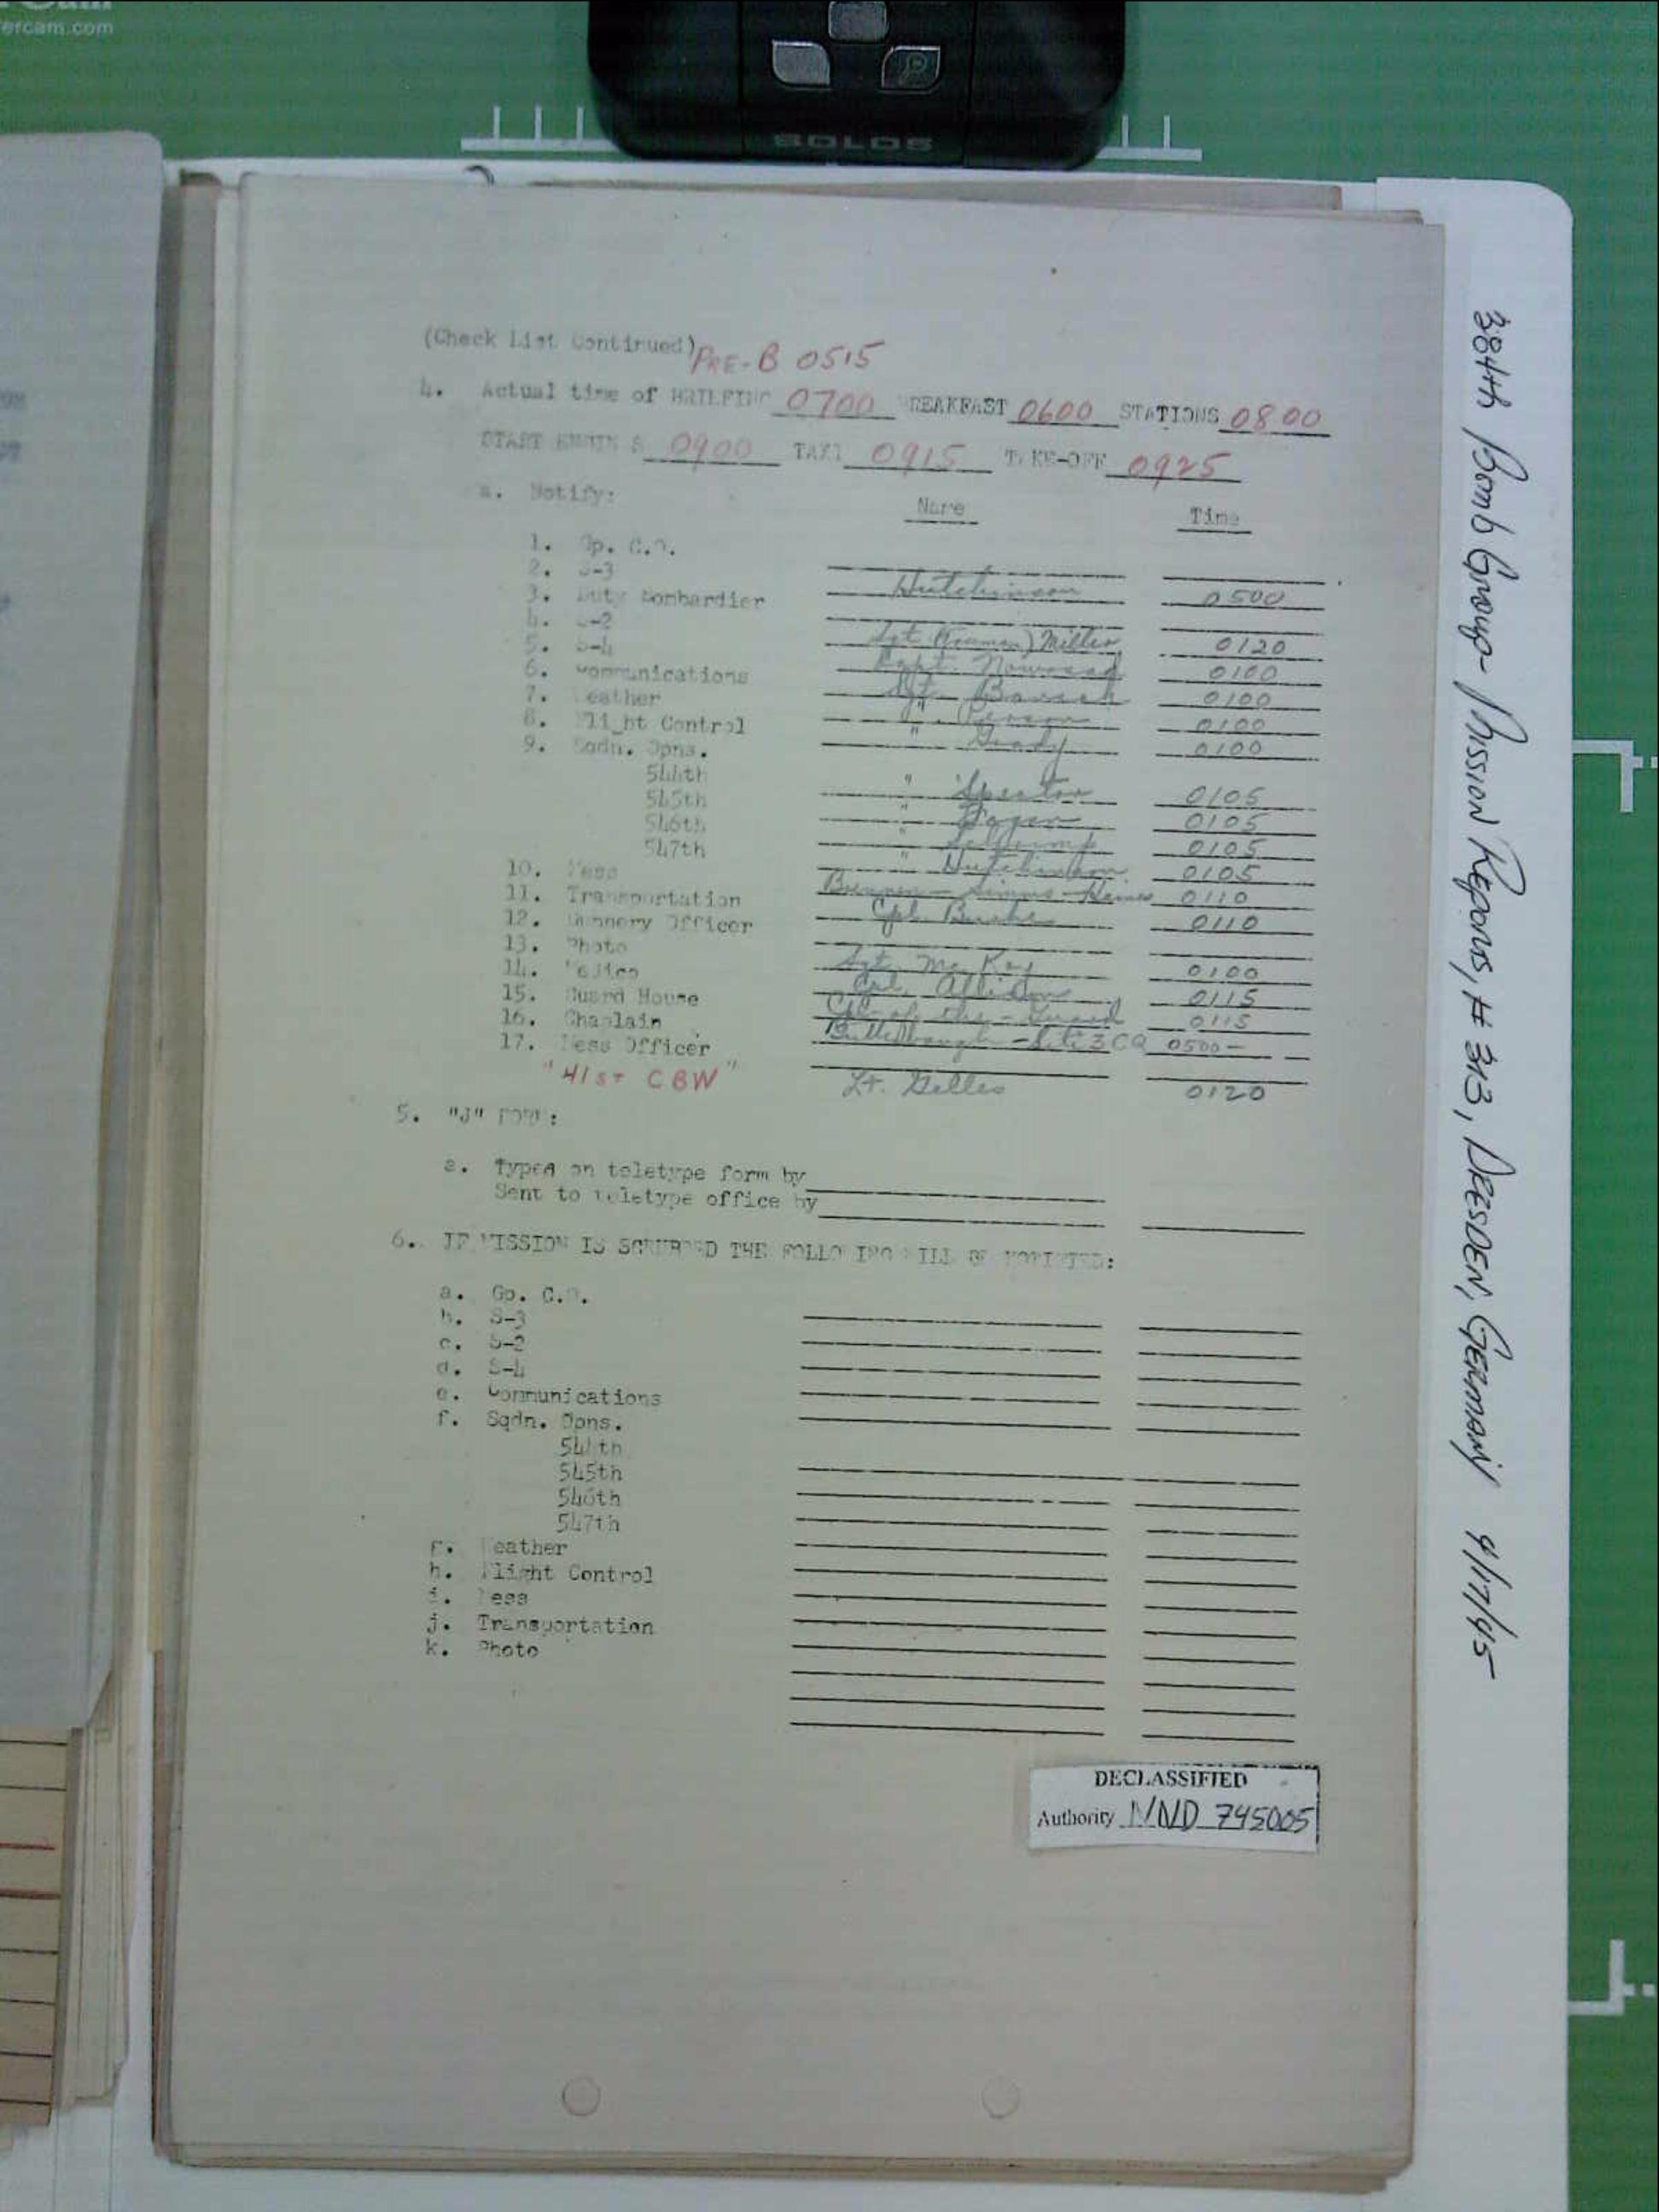 ercam.com
SOLOS
(Check List Continued) PRE-B 0515
4. Actual time of BRIEFING 0700 BREAKFAST 0600 STATIONS 0800
START ENGINES 0900 TAXI 0915 TAKE-OFF 0925
a. Notify: Name Time
1. Gp. C.O.
2. S-3
3. Duty Bombardier Hutchinson 0500
4. S-2
5. S-4 Sgt. Miller 0120
6. Communications Capt. 0100
7. Weather Sgt. 0100
8. Flight Control " 0100
9. Sqdn. Opns. " Grady 0100
544th " 0105
545th " 0105
546th " 0105
547th " Hutchinson 0105
10. Mess 0110
11. Transportation Cpl. 0110
12. Gunnery Officer
13. Photo Sgt. McKay 0100
14. Medics Cpl. Allison 0115
15. Guard House Cpl-of the-Guard 0115
16. Chaplain Butterbaugh - Site 3 CQ 0500-
17. Mess Officer
"41st CBW" Lt. Gelles 0120
5. "J" FORM:
a. Typed on teletype form by
Sent to teletype office by
6. IF MISSION IS SCRUBBED THE FOLLOWING WILL BE NOTIFIED:
a. Gp. C.O.
b. S-3
c. S-2
d. S-4
e. Communications
f. Sqdn. Opns.
544th
545th
546th
547th
g. Weather
h. Flight Control
i. Mess
j. Transportation
k. Photo
DECLASSIFIED
Authority NND 745005
384th Bomb Group - Mission Reports, # 313, DRESDEN, GERMANY 4/17/45